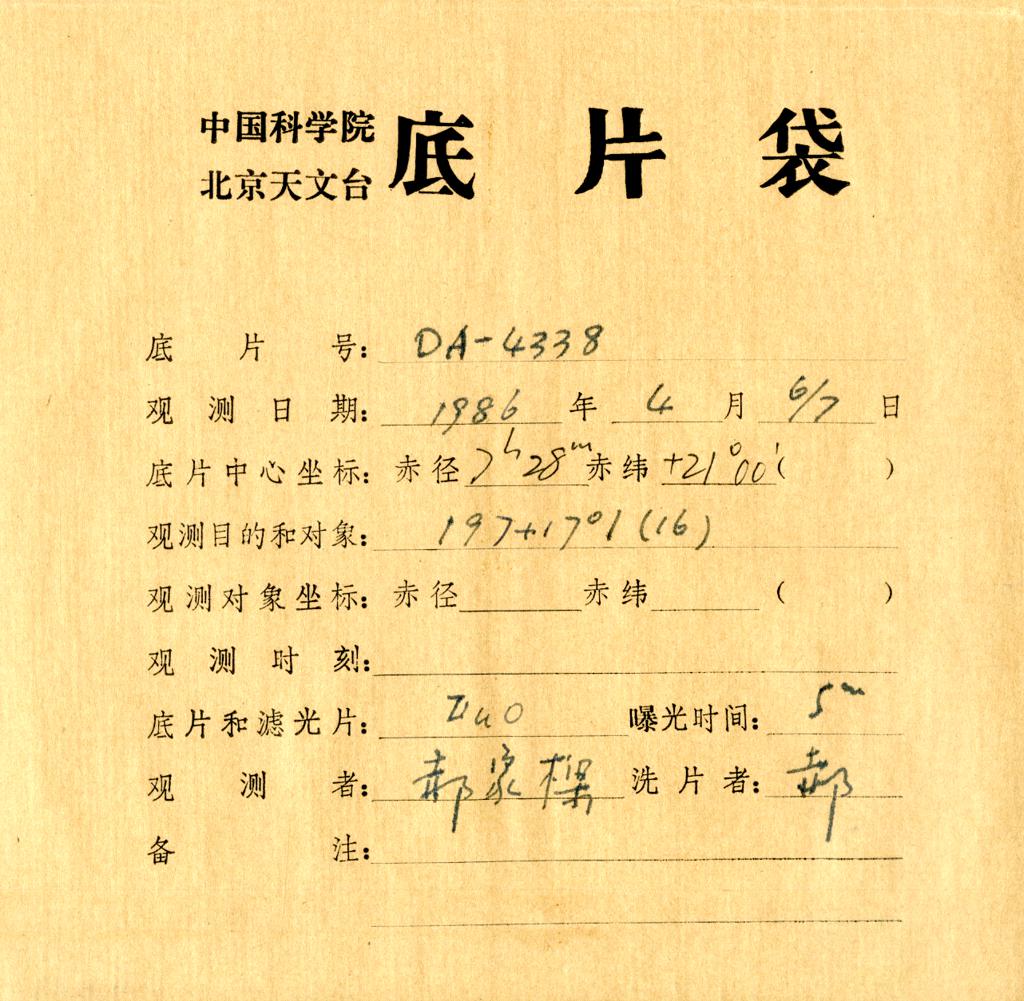 中国科学院
北京天文台
底片袋
底片号: DA-4338
观测日期: 1986年 4月 6/7日
底片中心坐标: 赤径 7h28m 赤纬 +21°00′( )
观测目的和对象: 197+17°1(16)
观测对象坐标: 赤径 赤纬 ( )
观测时刻:
底片和滤光片: ZUO 曝光时间: 5m
观测者: 郝家樑 洗片者: 郝
备注: